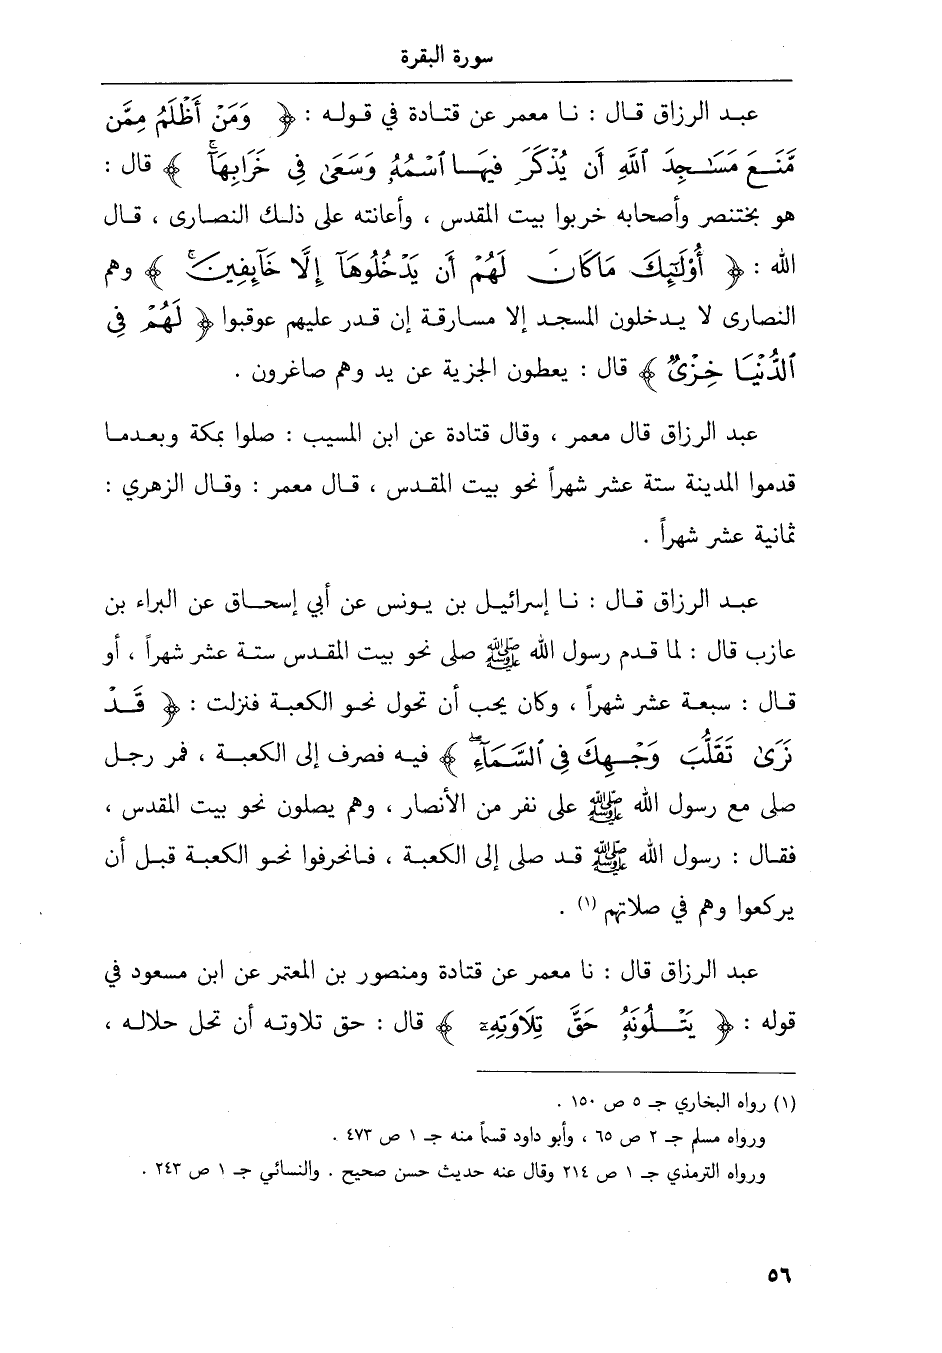 سورة البقرة
عبد الرزاق قال : نا معمر عن قتادة في قوله : ﴿ وَمَنْ أَظْلَمُ مِمَّن
مَّنَعَ مَسَٰجِدَ ٱللَّهِ أَن يُذْكَرَ فِيهَا ٱسْمُهُۥ وَسَعَىٰ فِى خَرَابِهَآ ۚ ﴾ قال :
هو بختنصر وأصحابه خربوا بيت المقدس ، وأعانته على ذلك النصارى ، قال
الله : ﴿ أُوْلَٰٓئِكَ مَا كَانَ لَهُمْ أَن يَدْخُلُوهَآ إِلَّا خَآئِفِينَ ۚ ﴾ وهم
النصارى لا يدخلون المسجد إلا مسارقة إن قدر عليهم عوقبوا ﴿ لَهُمْ فِى
ٱلدُّنْيَا خِزْىٌ ﴾ قال : يعطون الجزية عن يد وهم صاغرون .
عبد الرزاق قال معمر ، وقال قتادة عن ابن المسيب : صلوا بمكة وبعدما
قدموا المدينة ستة عشر شهراً نحو بيت المقدس ، قال معمر : وقال الزهري :
ثمانية عشر شهراً .
عبد الرزاق قال : نا إسرائيل بن يونس عن أبي إسحاق عن البراء بن
عازب قال : لما قدم رسول الله ﷺ صلى نحو بيت المقدس ستة عشر شهراً ، أو
قال : سبعة عشر شهراً ، وكان يحب أن تحول نحو الكعبة فنزلت : ﴿ قَدْ
نَرَىٰ تَقَلُّبَ وَجْهِكَ فِى ٱلسَّمَآءِ ۖ ﴾ فيه فصرف إلى الكعبة ، فمر رجل
صلى مع رسول الله ﷺ على نفر من الأنصار ، وهم يصلون نحو بيت المقدس ،
فقال : رسول الله ﷺ قد صلى إلى الكعبة ، فانحرفوا نحو الكعبة قبل أن
يركعوا وهم في صلاتهم (١) .
عبد الرزاق قال : نا معمر عن قتادة ومنصور بن المعتمر عن ابن مسعود في
قوله : ﴿ يَتْلُونَهُۥ حَقَّ تِلَاوَتِهِۦٓ ﴾ قال : حق تلاوته أن تحل حلاله ،
(١) رواه البخاري جـ ٥ ص ١٥٠ .
ورواه مسلم جـ ٢ ص ٦٥ ، وأبو داود قسماً منه جـ ١ ص ٤٧٣ .
ورواه الترمذي جـ ١ ص ٢١٤ وقال عنه حديث حسن صحيح . والنسائي جـ ١ ص ٢٤٣ .
٥٦